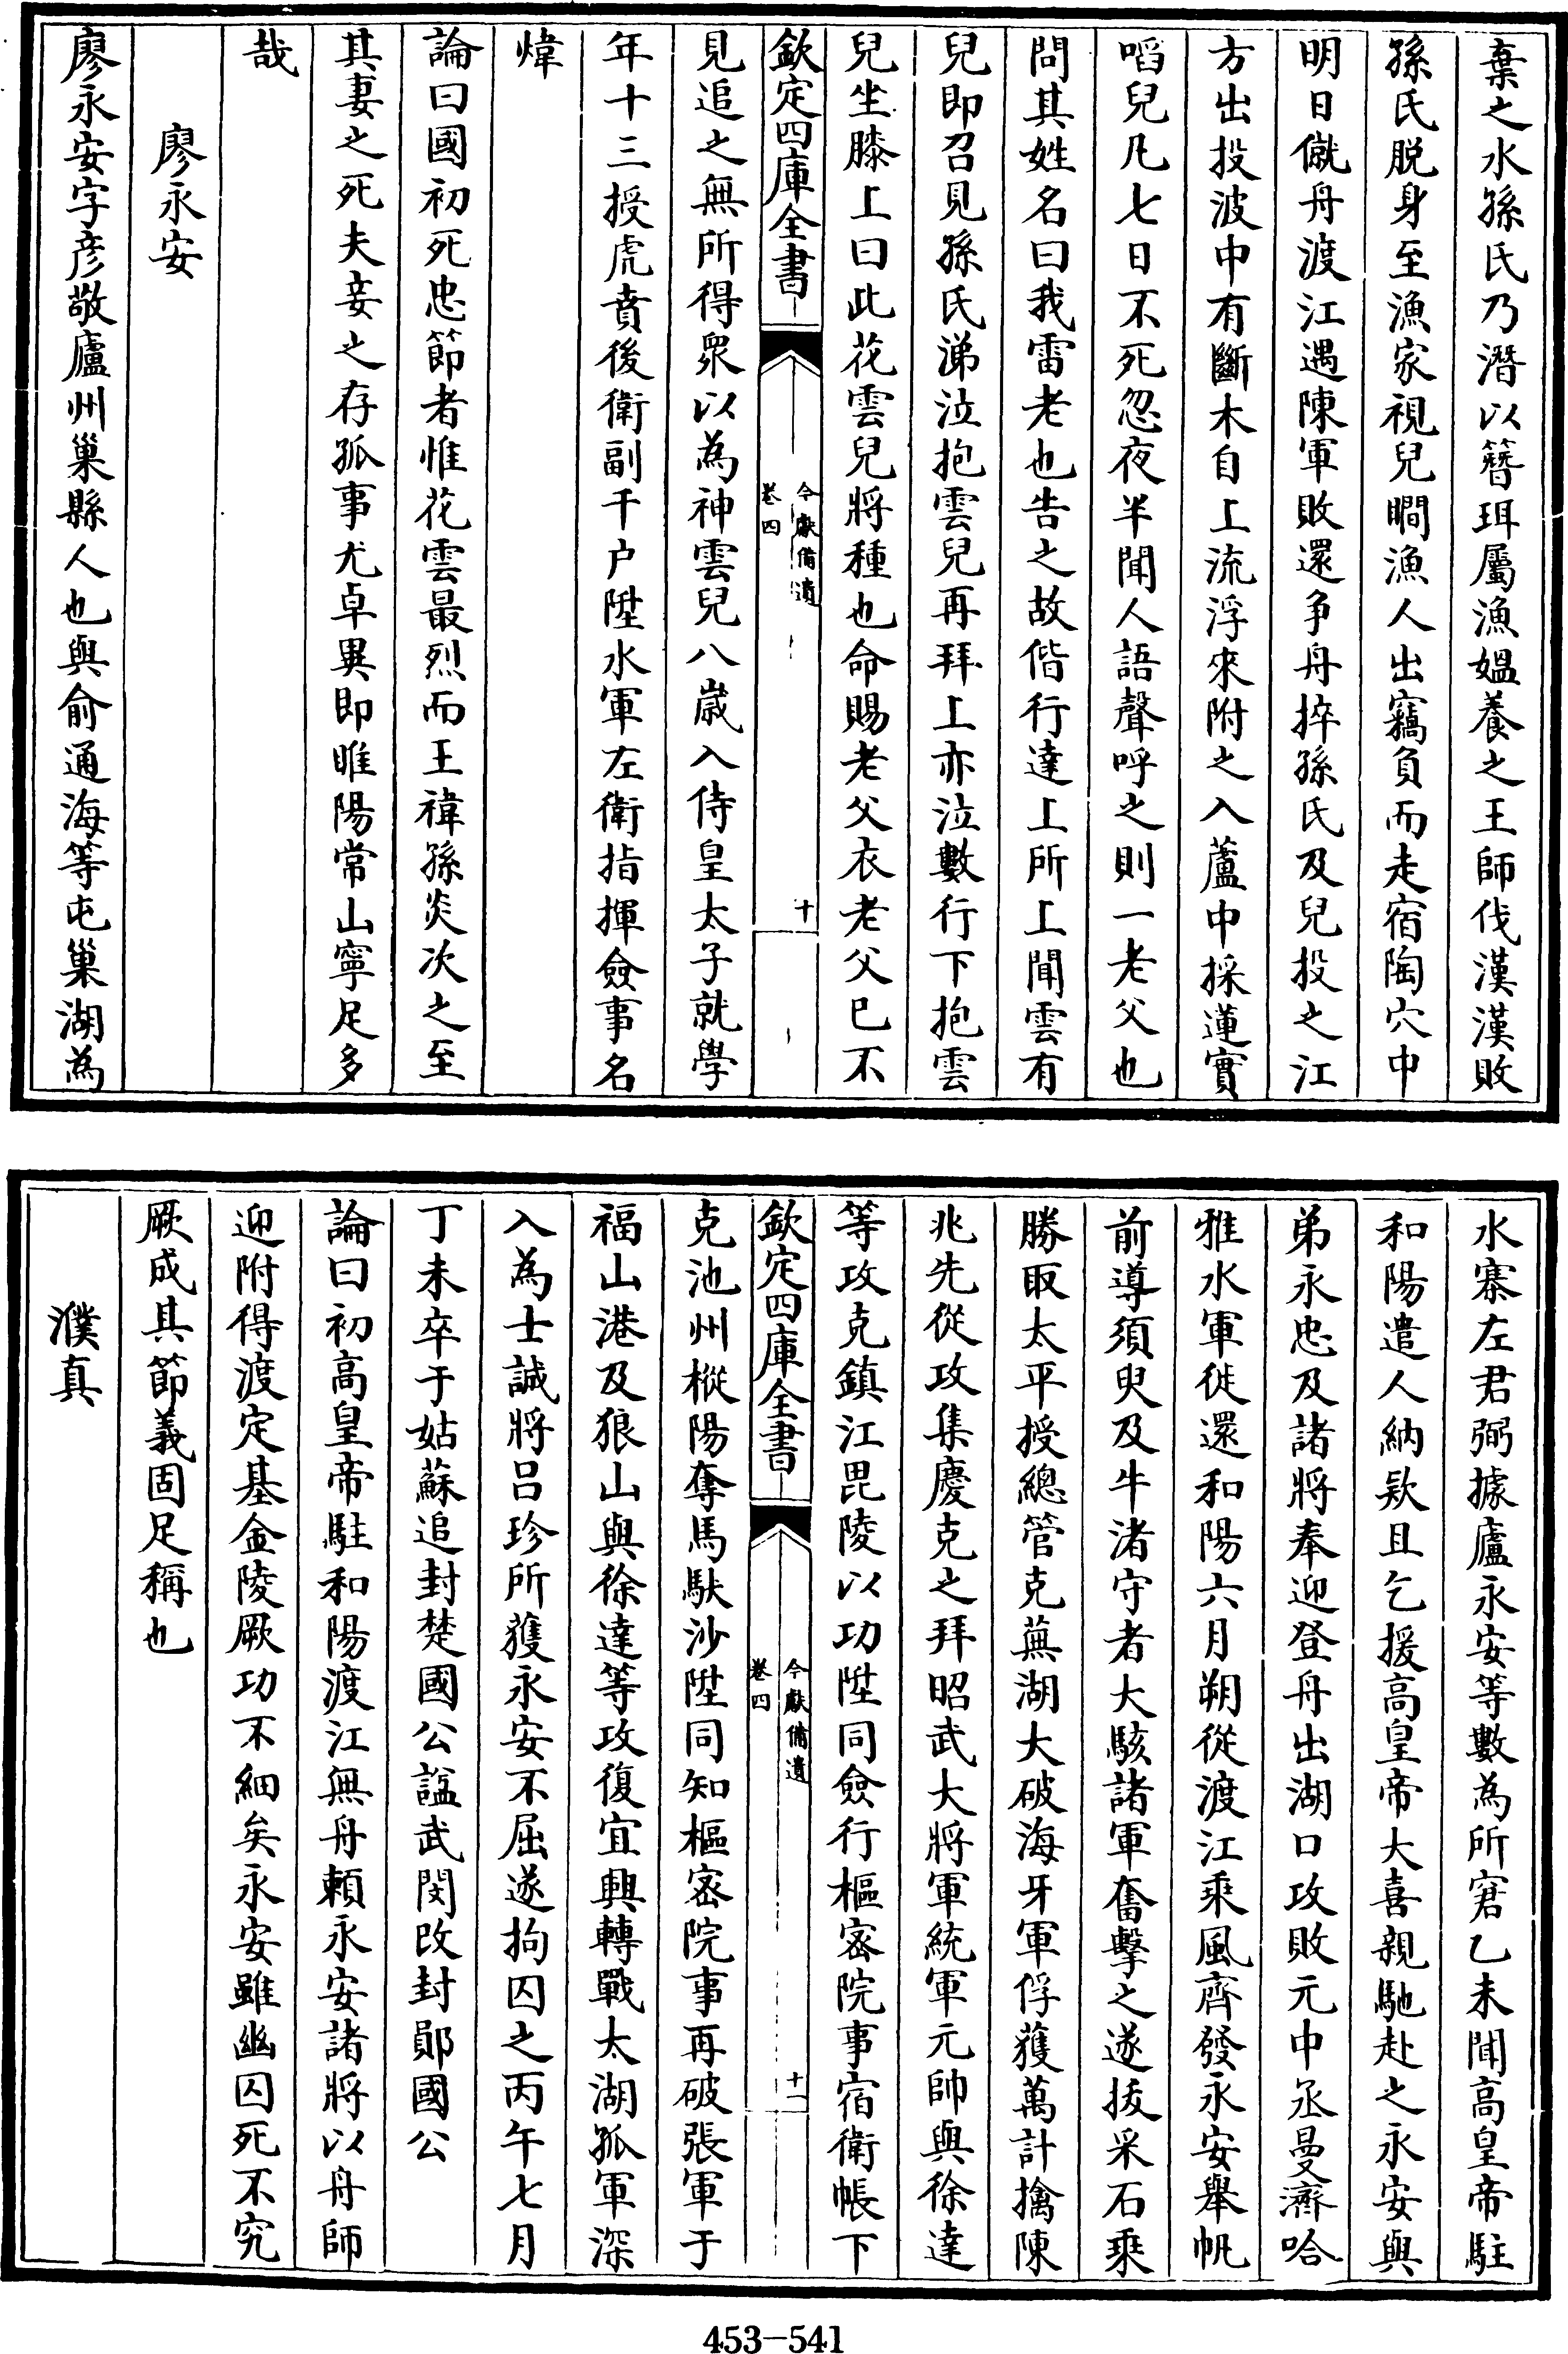 棄之水孫氏乃潛以簪珥屬漁媼養之王師伐漢漢敗
孫氏脱身至漁家視兒瞷漁人出竊負而走宿陶穴中
明日僦舟渡江遇陳軍敗還爭舟捽孫氏及兒投之江
方出投波中有斷木自上流浮來附之入蘆中採蓮實
㗖兒凡七日不死忽夜半聞人語聲呼之則一老父也
問其姓名曰我雷老也告之故偕行達上所上聞雲有
兒即召見孫氏涕泣抱雲兒再拜上亦泣數行下抱雲
兒坐膝上曰此花雲兒將種也命賜老父衣老父已不
欽定四庫全書
今獻備遺
卷四
十
見追之無所得衆以為神雲兒八歲入侍皇太子就學
年十三授虎賁後衛副千户陞水軍左衛指揮僉事名
煒
論曰國初死忠節者惟花雲最烈而王禕孫炎次之至
其妻之死夫妾之存孤事尤卓異即睢陽常山寧足多
哉
廖永安
廖永安字彦敬廬州巢縣人也與俞通海等屯巢湖為
水寨左君弼據廬永安等數為所窘乙未聞高皇帝駐
和陽遣人納款且乞援高皇帝大喜親馳赴之永安與
弟永忠及諸將奉迎登舟出湖口攻敗元中丞曼濟哈
雅水軍徙還和陽六月朔從渡江乘風齊發永安舉帆
前導須臾及牛渚守者大駭諸軍奮擊之遂拔采石乘
勝取太平授總管克蕪湖大破海牙軍俘獲萬計擒陳
兆先從攻集慶克之拜昭武大將軍統軍元帥與徐達
等攻克鎮江毘陵以功陞同僉行樞密院事宿衛帳下
欽定四庫全書
今獻備遺
卷四
十一
克池州樅陽奪馬馱沙陞同知樞密院事再破張軍于
福山港及狼山與徐達等攻復宜興轉戰太湖孤軍深
入為士誠將吕珍所獲永安不屈遂拘囚之丙午七月
丁未卒于姑蘇追封楚國公諡武閔改封鄖國公
論曰初高皇帝駐和陽渡江無舟頼永安諸將以舟師
迎附得渡定基金陵厥功不細矣永安雖幽囚死不究
厥成其節義固足稱也
濮真
453-541